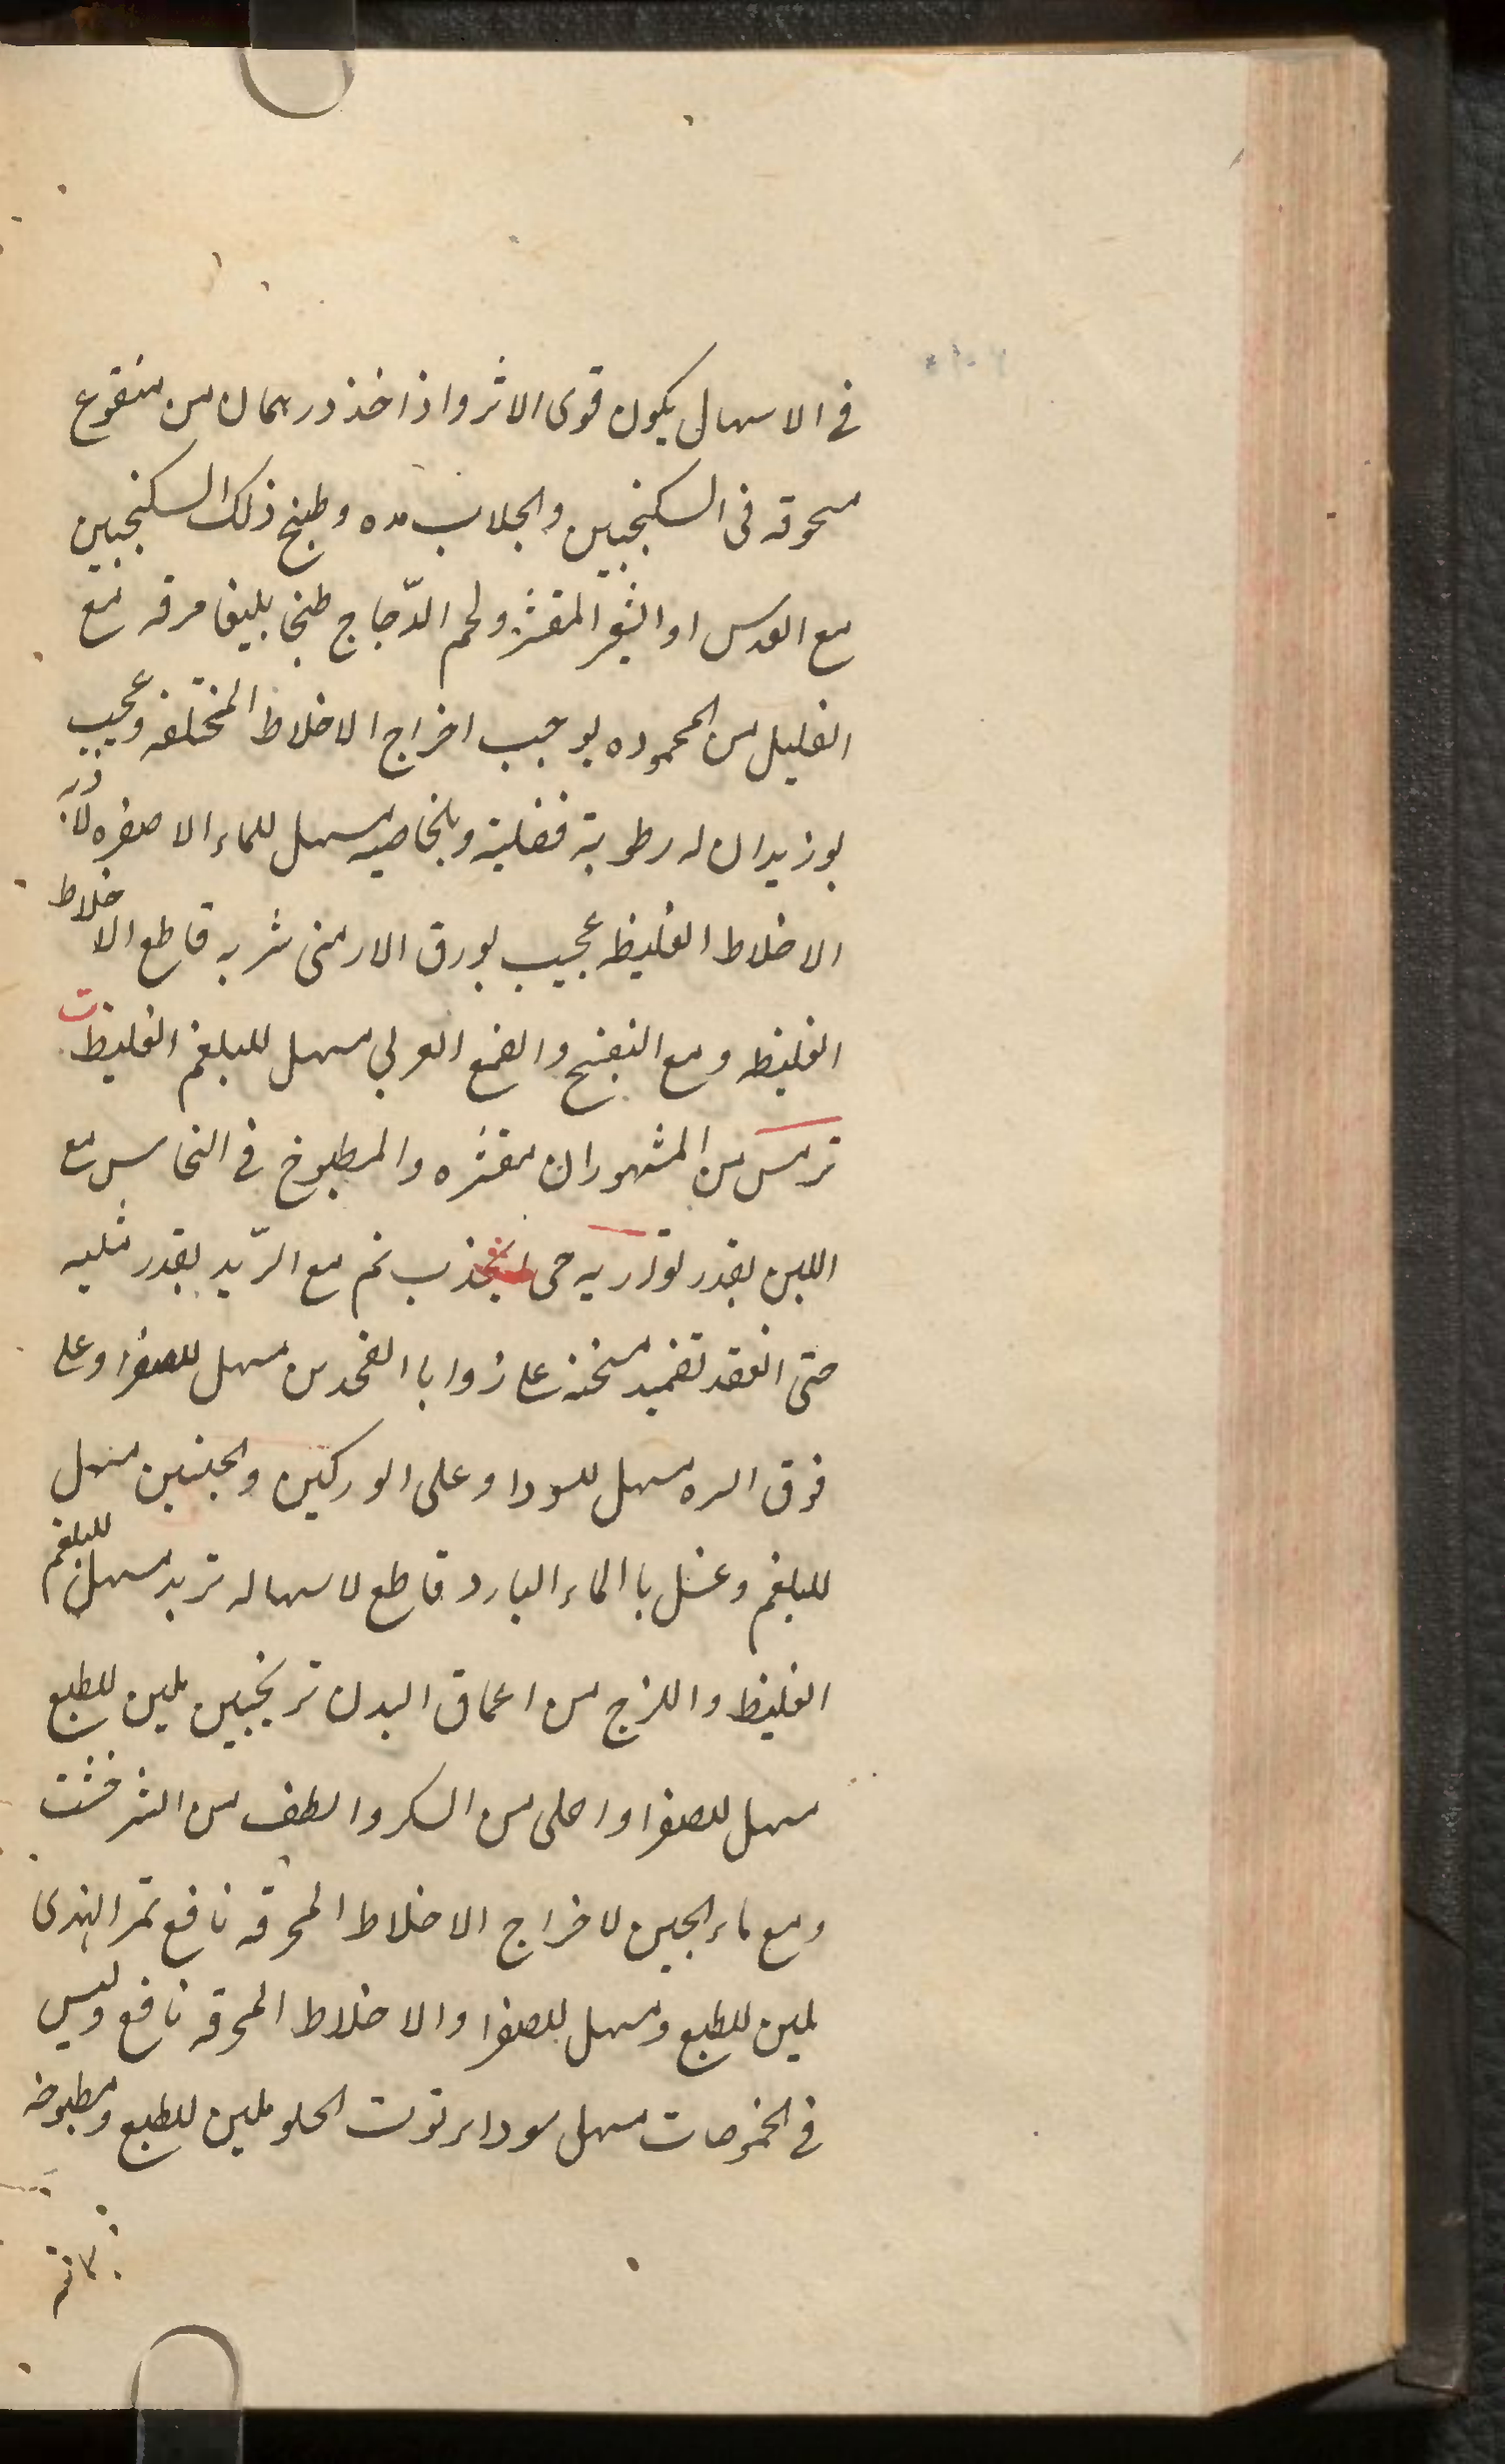 في الاسهال يكون قوى الاثر واذا اخذ درهمان من منقوع
مسحوقه فى السكنجبين والجلاب مده وطبخ ذلك السكنجبين
مع العدس او الشعير المقشر ولحم الدّجاج طبخا بليغا مرقه مع
القليل من المحموده يوجب اخراج الاخلاط المختلفه وعجيب
بوزيدان له رطوبة فضلية وبالخاصيه مسهل للماء الاصفر
الاخلاط الغليظه عجيب بورق الارمنى شربه قاطع الاخلاط
الغليظه ومع البنفسج والصمغ العربي مسهل للبلغم الغليظ ت
ترمس من المشهور ان مقشره والمطبوخ في النحاس مع
اللبن بقدر حتى ينجذب ثم مع الرّيد بقدر ثلثيه
حتى انعقد تضميد مسخنه على زوايا الفخدين مسهل للصفرا وعلى
فوق السره مسهل للسودا وعلى الوركين والجنبين مسهل
للبلغم وغسل با الماء البارد قاطع لاسهاله تربد مسهل للبلغم
الغليظ واللزج من اعماق البدن ترنجبين ملين للطبع
مسهل للصفرا واحلى من السكر والطف من الشرخشت
ومع ماء الجبن لاخراج الاخلاط المحرقه نافع تمر الهندى
ملين للطبع ومسهل للصفرا والاخلاط المحرقه نافع وليس
في الحموضات مسهل سواه توت الحلو ملين للطبع ومطبوخه